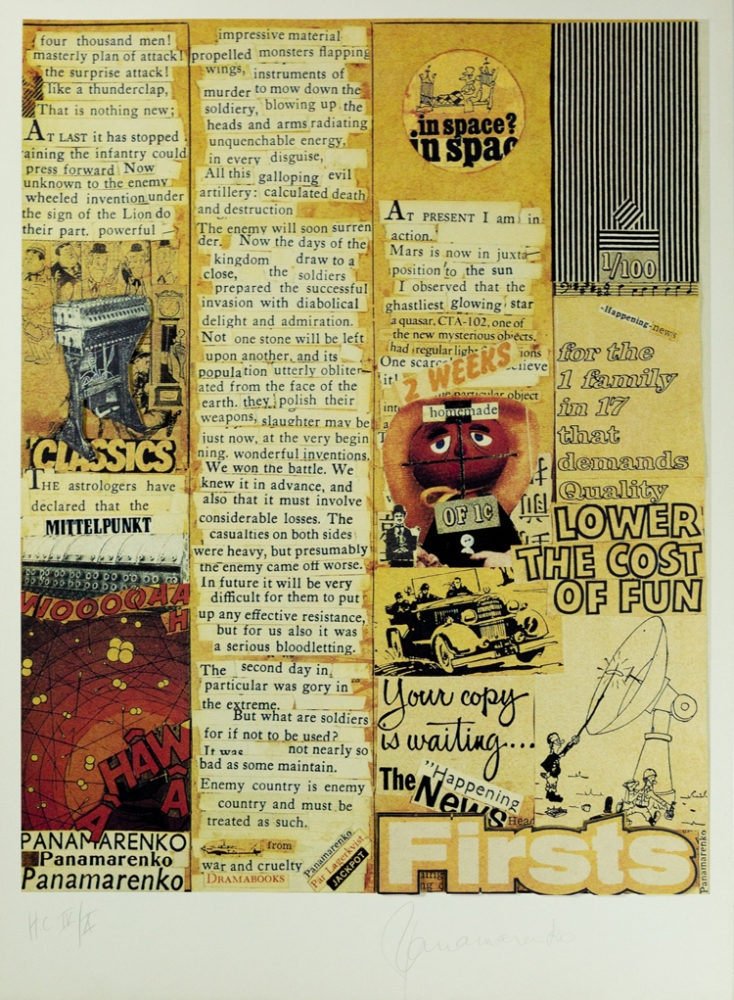 four thousand men!
masterly plan of attack!
the surprise attack!
like a thunderclap,
That is nothing new;
AT LAST it has stopped
raining the infantry could
press forward Now
unknown to the enemy
wheeled invention under
the sign of the Lion do
their part. powerful
CLASSICS
THE astrologers have
declared that the
MITTELPUNKT
HÂW
PANAMARENKO
Panamarenko
Panamarenko
impressive material
propelled monsters flapping
wings, instruments of
murder to mow down the
soldiery, blowing up the
heads and arms radiating
unquenchable energy,
in every disguise,
All this galloping evil
artillery: calculated death
and destruction
The enemy will soon surren
der. Now the days of the
kingdom draw to a
close, the soldiers
prepared the successful
invasion with diabolical
delight and admiration.
Not one stone will be left
upon another, and its
population utterly obliter
ated from the face of the
earth. they polish their
weapons, slaughter may be
just now, at the very begin
ning. wonderful inventions.
We won the battle. We
knew it in advance, and
also that it must involve
considerable losses. The
casualties on both sides
were heavy, but presumably
the enemy came off worse.
In future it will be very
difficult for them to put
up any effective resistance,
but for us also it was
a serious bloodletting.
The second day in
particular was gory in
the extreme.
But what are soldiers
for if not to be used?
It was not nearly so
bad as some maintain.
Enemy country is enemy
country and must be
treated as such.
from
war and cruelty
DRAMABOOKS
Panamarenko
Par Lagerkvist
JACKPOT
in space?
in spac
AT PRESENT I am in
action.
Mars is now in juxta
position to the sun
I observed that the
ghastliest glowing star
a quasar, CTA-102, one of
the new mysterious objects,
had irregular light
One scarce believe
it!
2 WEEKS
particular object
homemade
OF 1¢
Your copy
is waiting...
The "Happening
News
Head
Firsts
1/100
-Happening-news
for the
1 family
in 17
that
demands
Quality
LOWER
THE COST
OF FUN
Panamarenko
HC IV/X
Panamarenko